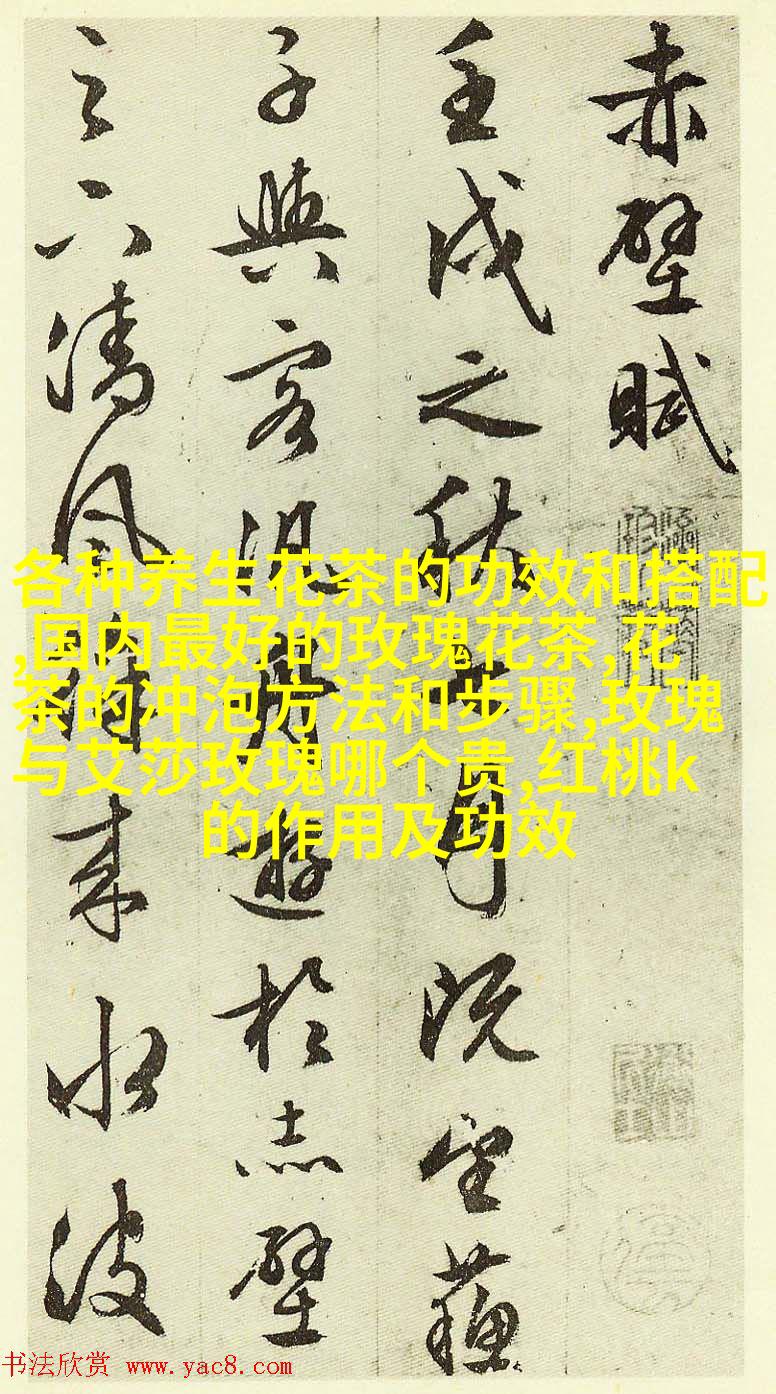 赤壁賦
壬戌之秋七月既望蘇
子與客泛舟遊於赤壁
之下清風徐来水波
各种养生花茶的功效和搭配
,国内最好的玫瑰花茶,花
茶的冲泡方法和步骤,玫瑰
与艾莎玫瑰哪个贵,红桃k
的作用及功效
书法欣赏 www.yac8.com